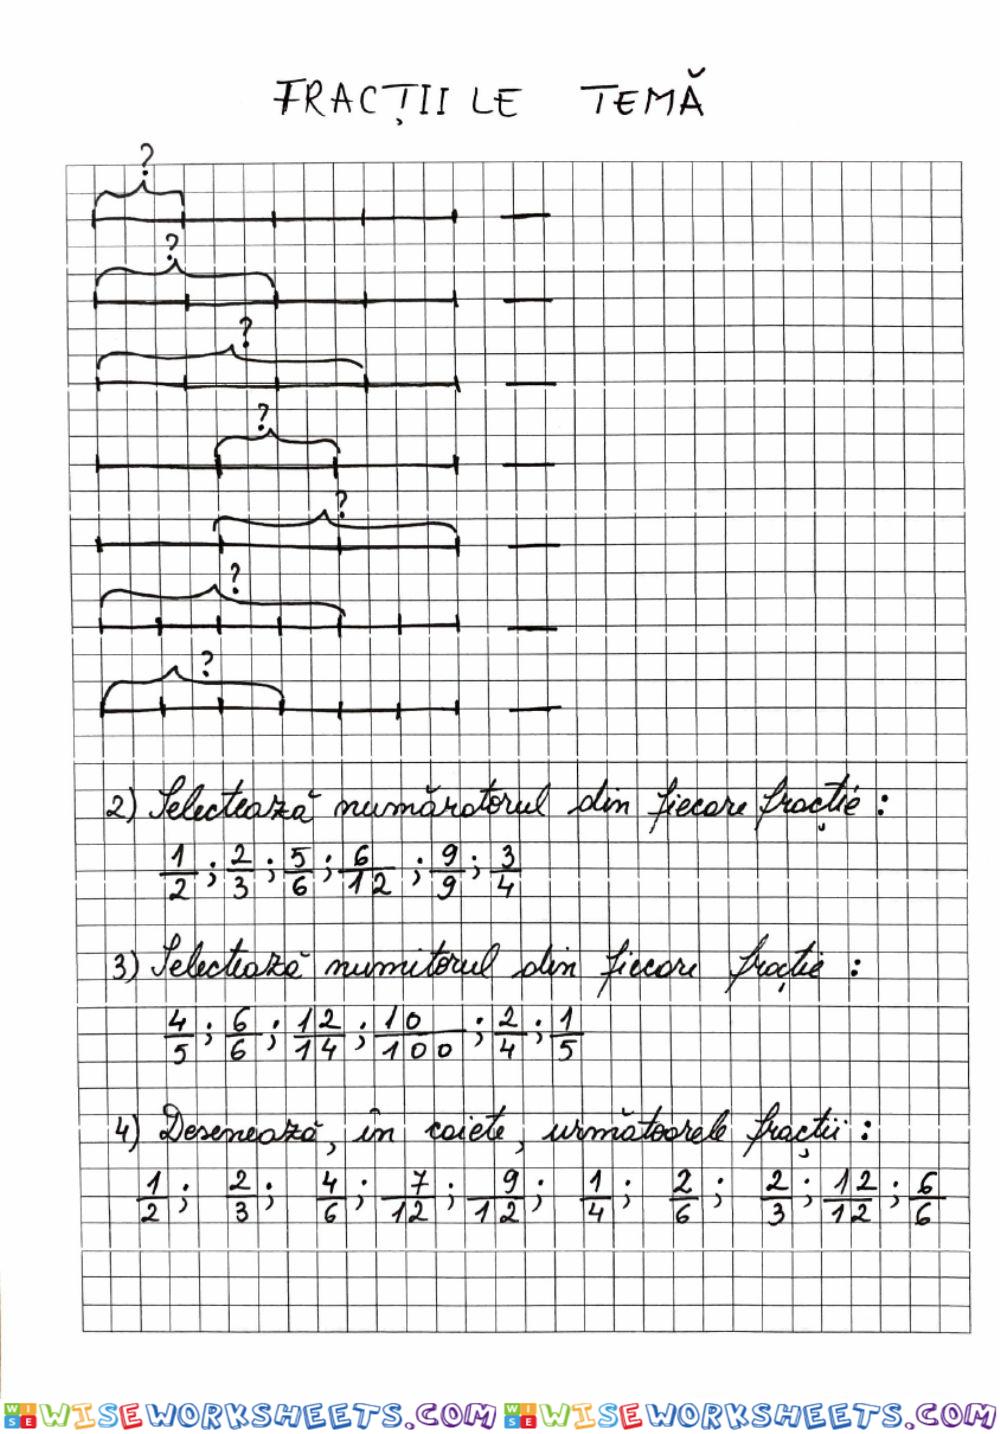 FRACȚIILE TEMĂ
?
?
?
?
?
?
?
2) Selectează numărătorul din fiecare fracție :
1/2 ; 2/3 ; 5/6 ; 6/12 ; 9/9 ; 3/4
3) Selectează numitorul din fiecare fracție :
4/5 ; 6/6 ; 12/14 ; 10/100 ; 2/4 ; 1/5
4) Desenează, în caiete, următoarele fracții :
1/2 ; 2/3 ; 4/6 ; 7/12 ; 9/12 ; 1/4 ; 2/6 ; 2/3 ; 12/12 ; 6/6
WISE WISEWORKSHEETS.COM WISE WISEWORKSHEETS.COM